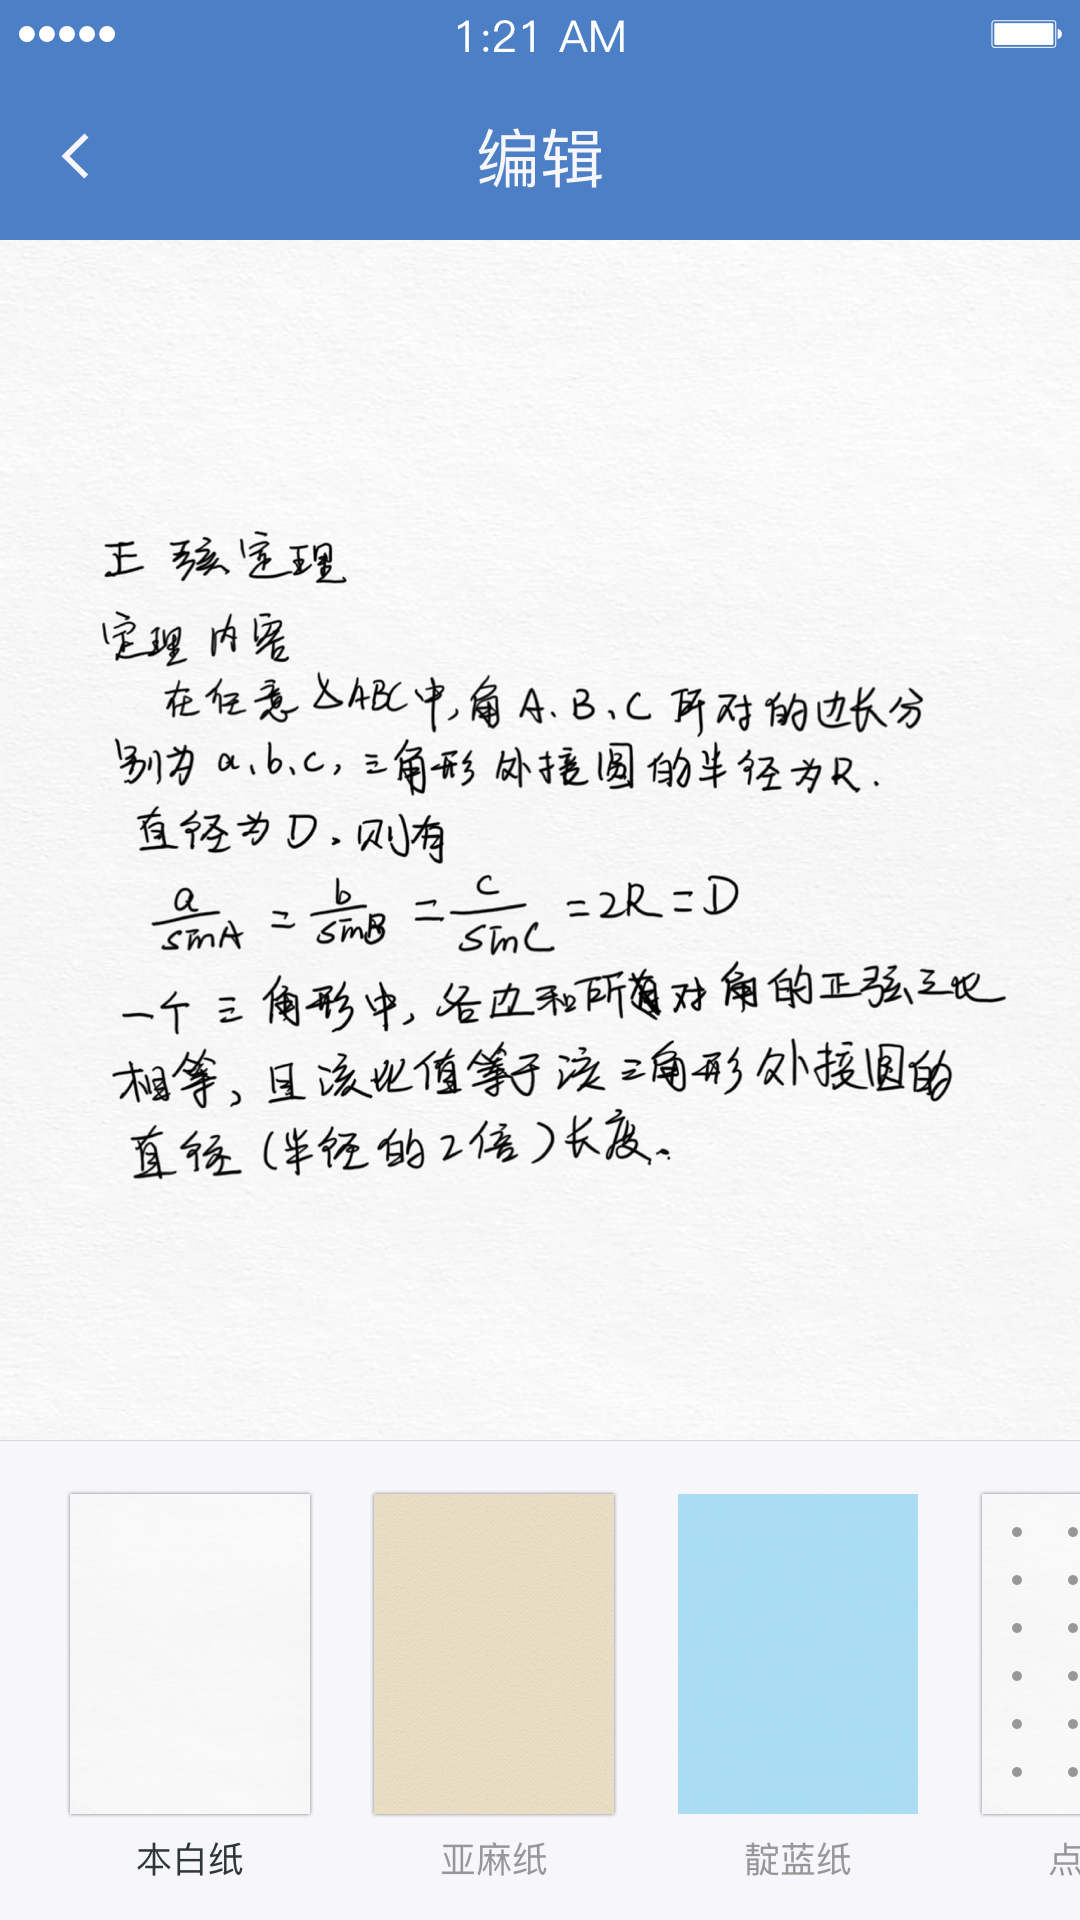 1:21 AM
编辑
正弦定理
定理内容
在任意△ABC中,角A、B、C所对的边长分
别为a、b、c,三角形外接圆的半径为R.
直径为D.则有
a/sinA = b/sinB = c/sinC = 2R = D
一个三角形中,各边和所对角的正弦之比
相等,且该比值等于该三角形外接圆的
直径(半径的2倍)长度.
本白纸 亚麻纸 靛蓝纸 点